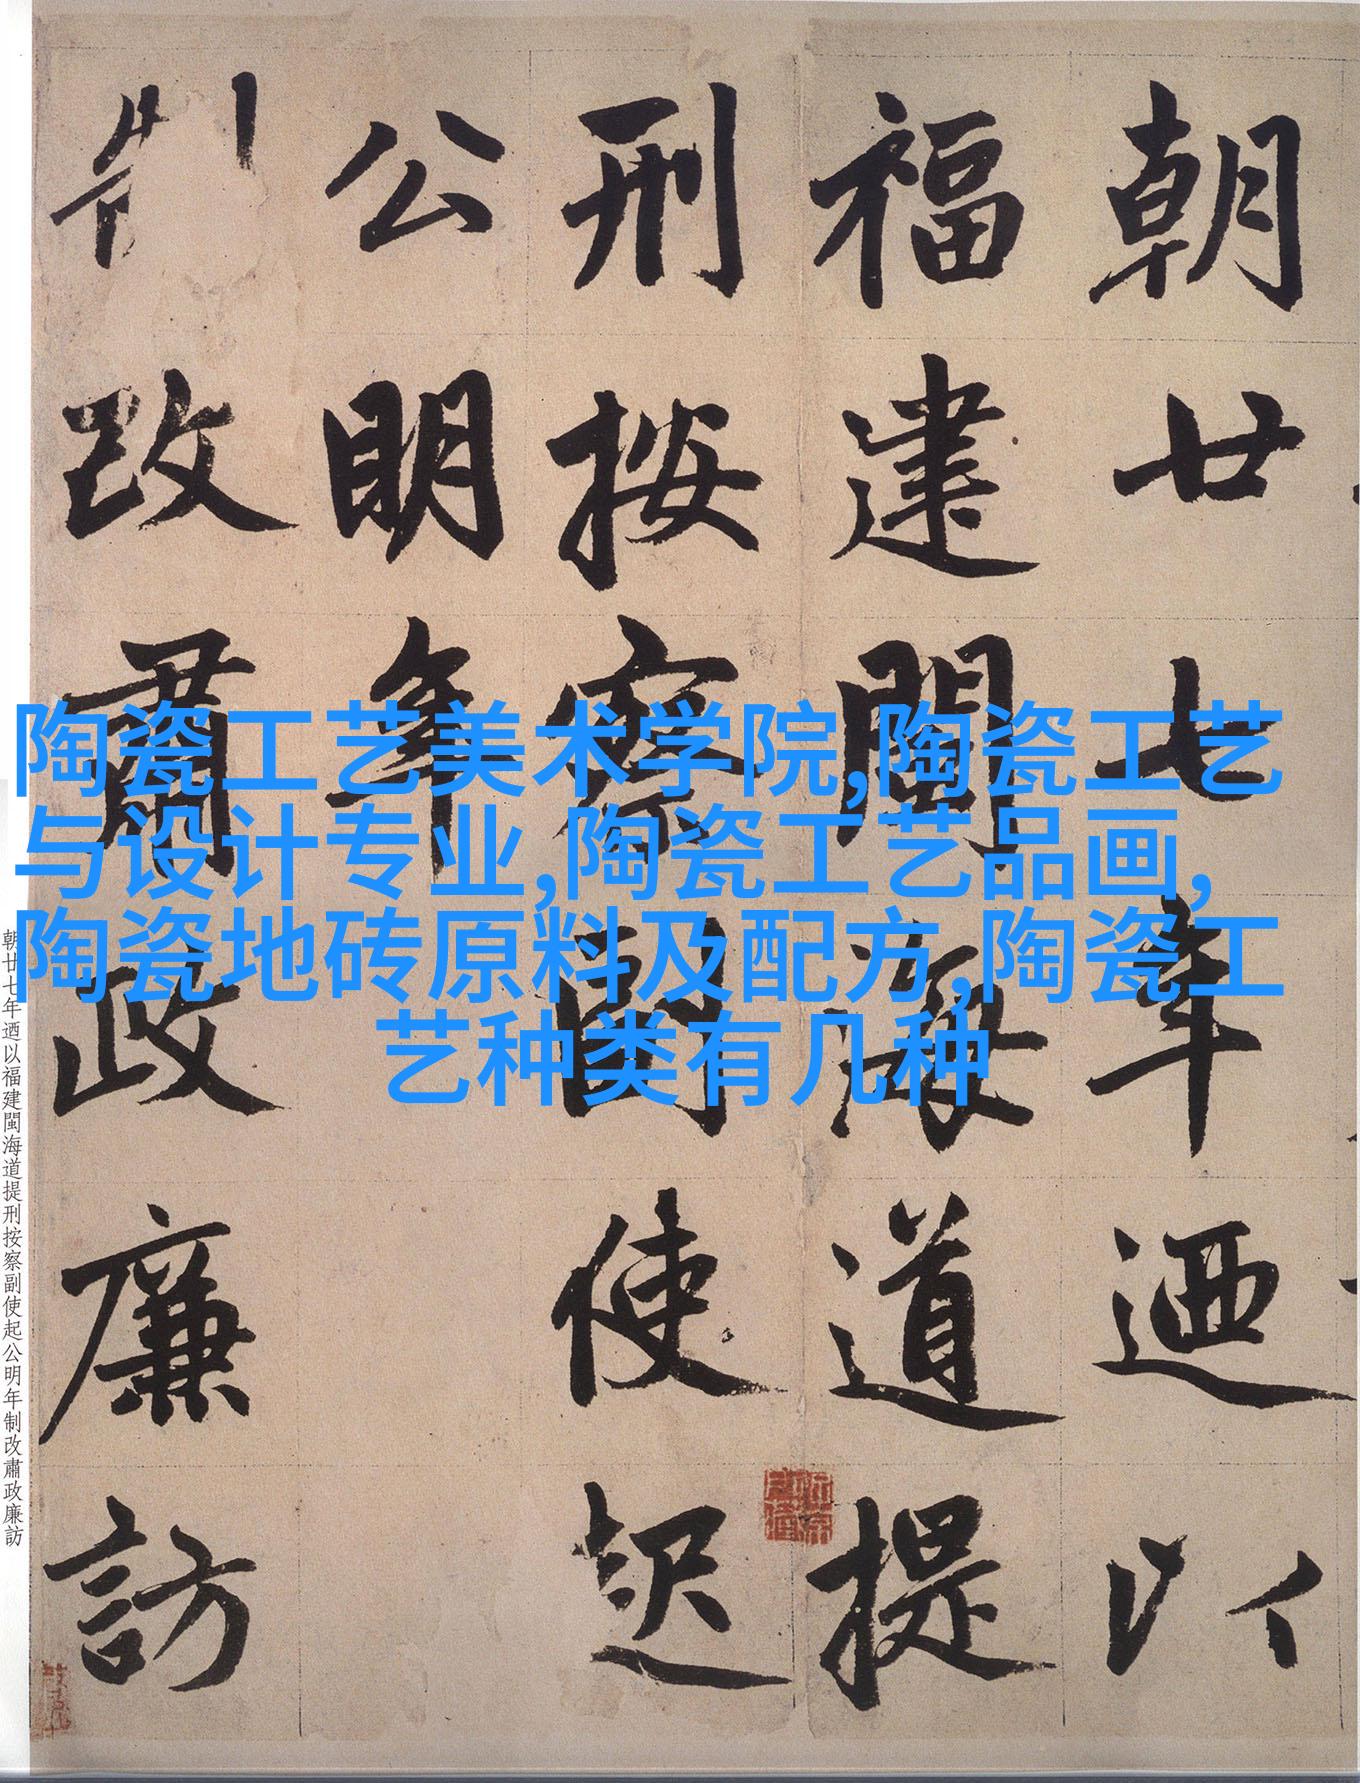 朝廿七年迺以
福建閩海道提
刑按察副使起
公明年
制改肅政廉訪
陶瓷工艺美术学院,陶瓷工艺
与设计专业,陶瓷工艺品画,
陶瓷地砖原料及配方,陶瓷工
艺种类有几种
朝廿七年迺以福建閩海道提刑按察副使起公明年制改肅政廉訪